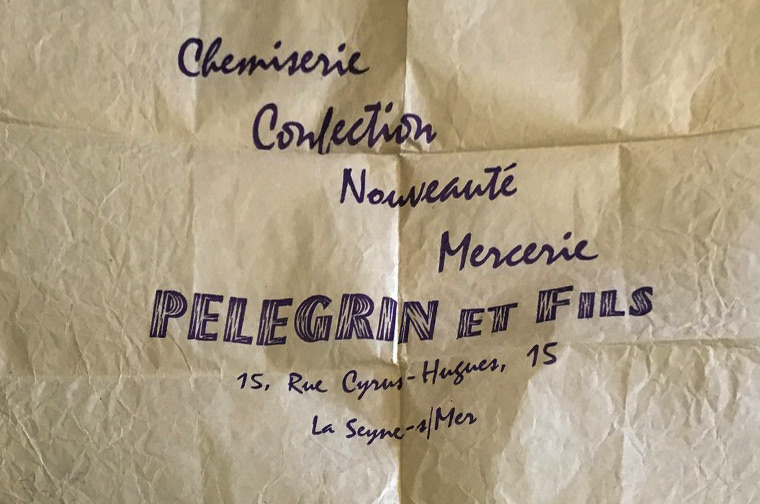 Chemiserie
Confection
Nouveauté
Mercerie
PELEGRIN ET FILS
15, Rue Cyrus-Hugues, 15
La Seyne-s/Mer